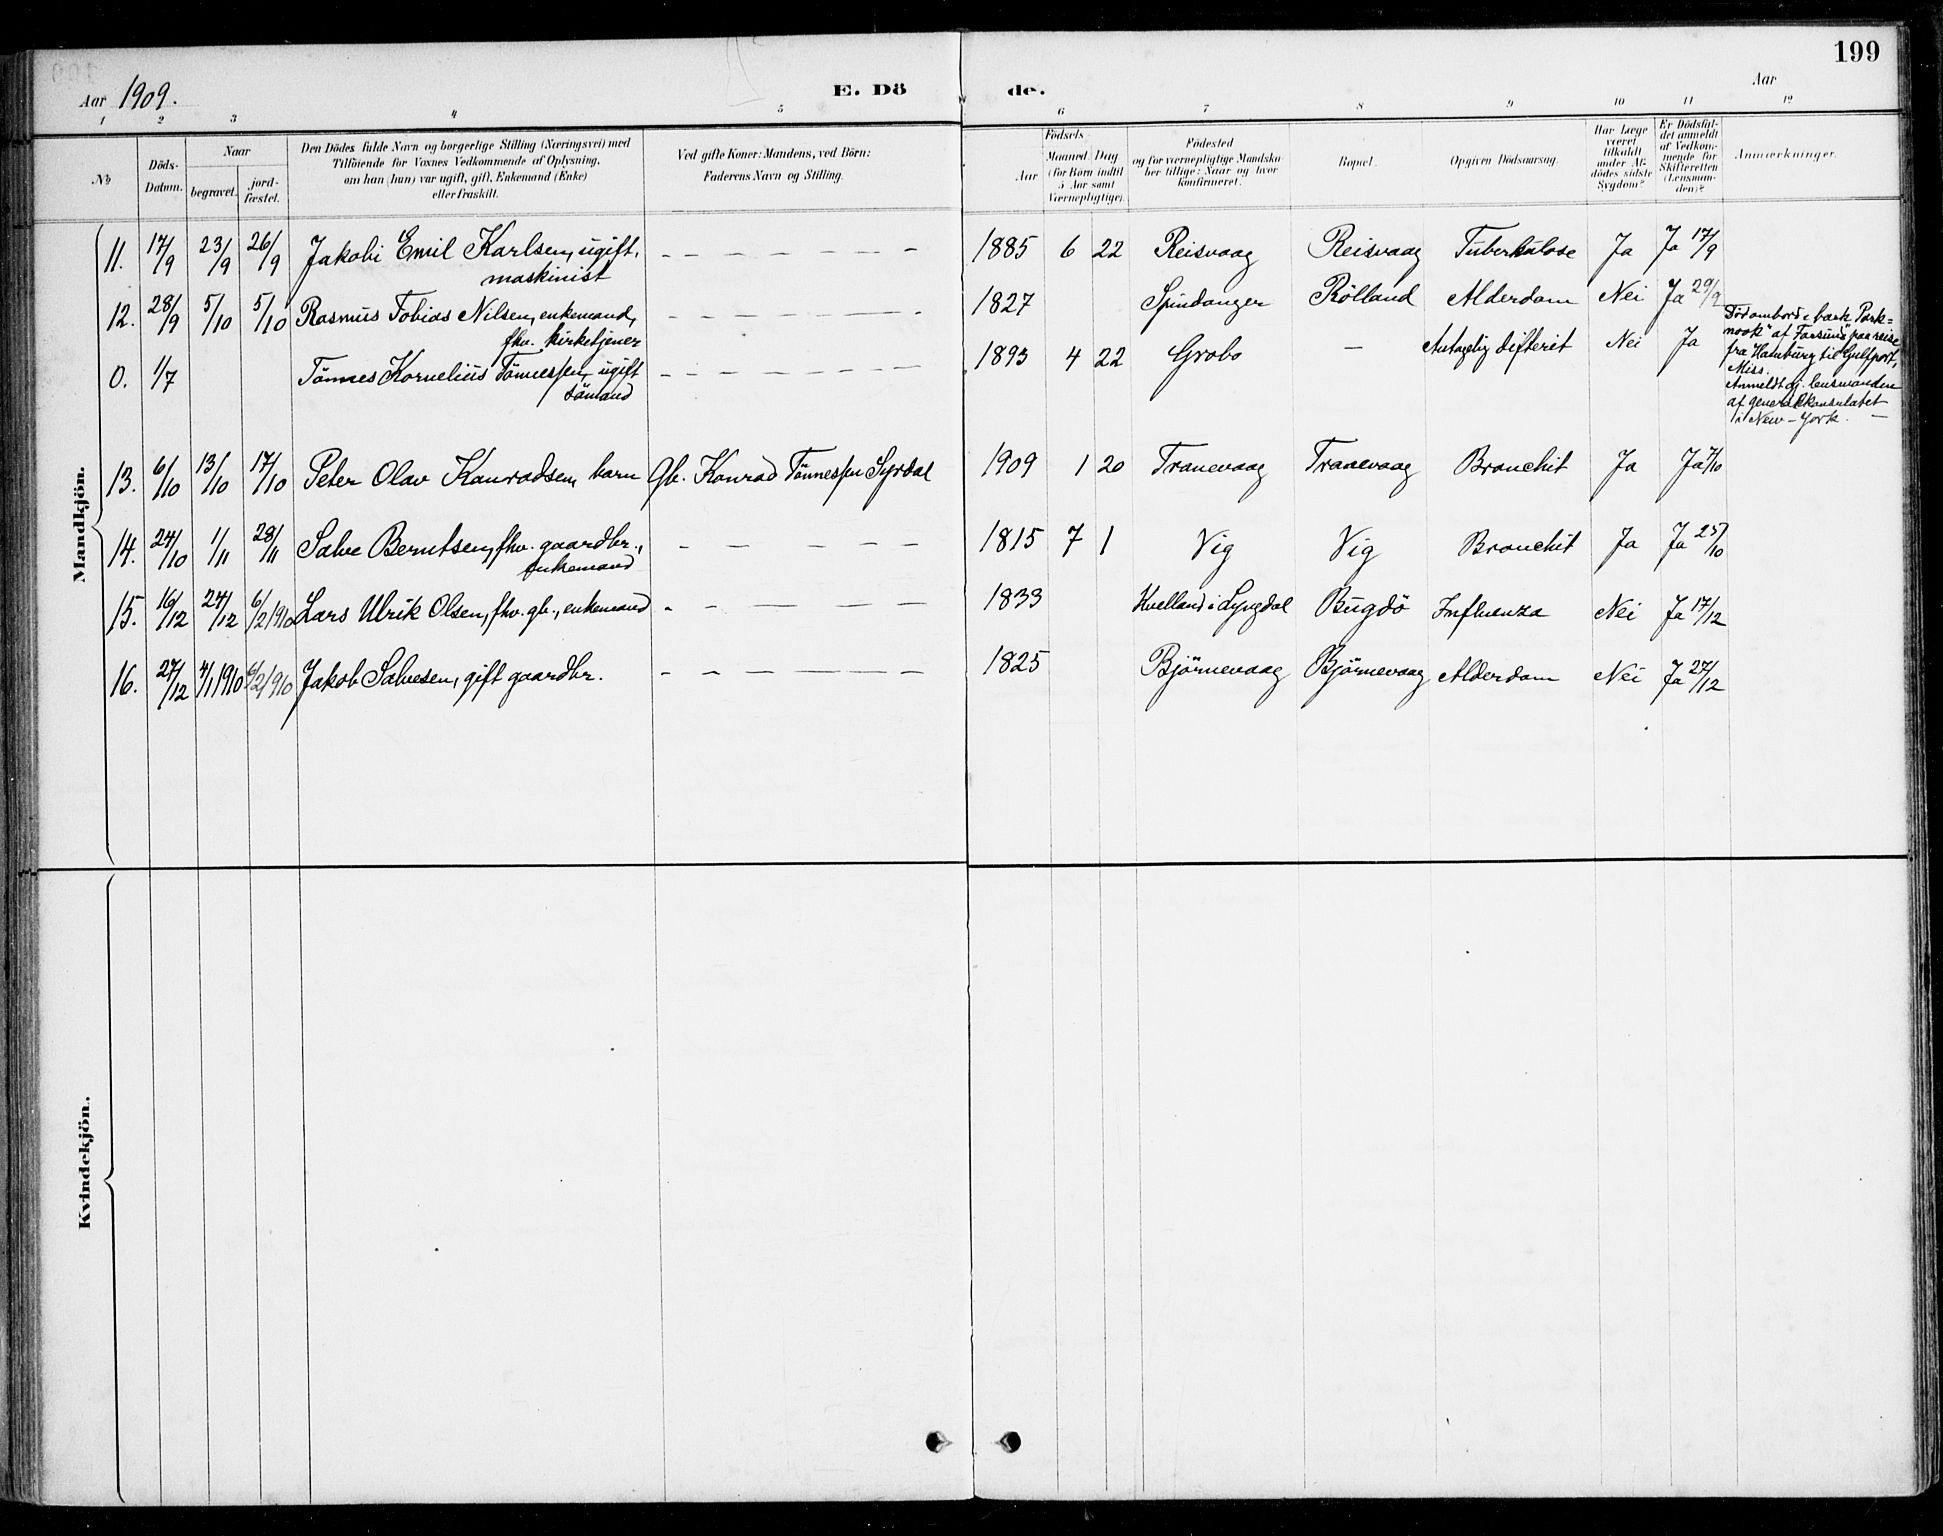 199
Aar 1909. E. Dö de. Aar
1 2 3 4 5 6 7 8 9 10 11 12
№ Döds-Datum. Naar begravet. jordfæstet.
Den Dödes fulde Navn og borgerlige Stilling (Næringsvei) med
Tilföiende for Voxnes Vedkommende af Oplysning,
om han (hun) var ugift, gift, Enkemand (Enke)
eller fraskilt.
Ved gifte Koner: Mandens, ved Börn:
Faderens Navn og Stilling.
Födsels
Aar Maaned Dag
(for Börn indtil
5 Aar samt
Værnepligtige).
Födested
og for værnepligtige Mandskaber tillige: Naar og hvor
konfirmeret.
Bopæl.
Opgiven Dödsaarsag.
Har Læge
været
tilkaldt
under Afdödes sidste
Sygdom?
Er Dödsfaldet anmeldt
af Vedkommende for
Skifteretten
(Lensmanden)?
Anmærkninger.
Mandkjön.
11. 17/9 23/9 26/9 Jakobi Emil Karlsen, ugift, — — — — — — 1885 6 22 Reisvaag Reisvaag Tuberkulose Ja Ja 17/9
maskinist
12. 28/9 5/10 5/10 Rasmus Tobias Nilsen, enkemand, — — — — — — 1827 Spindanger Rölland Alderdom Nei Ja 29/9
fhv. kirketjener
0. 1/7 Tönnes Kornelius Tönnessen, ugift — — — — — — 1893 4 22 Grobo — Antagelig difterit Nei Ja
sömand
Död ombord i bark "Park-
nook" af Farsund paa reise
fra Hamburg til Gulfport,
Miss.
Anmeldt gj. lensmanden
af generalkonsulatet
i New-York. —
13. 6/10 13/10 17/10 Peter Olav Konradsen, barn Gb. Konrad Tönnessen Syrdal 1909 1 20 Tranevaag Tranevaag Bronchit Ja Ja 7/10
14. 24/10 1/11 28/11 Salve Berntsen, fhv. gaardbr., — — — — — 1815 7 1 Vig Vig Bronchit Ja Ja 25/10
enkemand
15. 16/12 24/12 6/2 1910 Lars Ulrik Olsen, fhv. gb., enkemand — — — — — — 1833 Kvelland i Lyngdal Bugdö Influenza Nei Ja 17/12
16. 27/12 4/1 1910 6/2 1910 Jakob Salvesen, gift gaardbr. — — — — — — 1825 Björnevaag Björnevaag Alderdom Nei Ja 27/12
Kvindekjön.